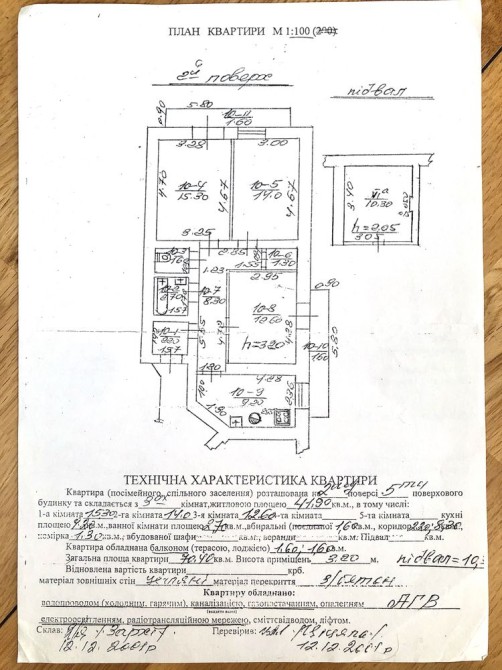 ПЛАН КВАРТИРИ М 1:100 (200)
поверх
підвал
5.80
0.90
10-11
1.60
3.28
3.00
4.70
10-4
15.30
4.67
10-5
14.0
4.67
3.40
VIª
10.30
h=2.05
3.05
3.25
2.85
10-6
1.30
10-3
1.60
1.23
1.55
2.95
10-2
2.70
10-7
8.30
0.90
1.57
10-8
12.60
10-1
2.20
4.28
1.57
h=3.20
10-10
1.60
5.80
1.20
4.28
10-9
9.30
1.90
ТЕХНІЧНА ХАРАКТЕРИСТИКА КВАРТИРИ
Квартира (посімейного, спільного заселення) розташована на 2ому поверсі 5ти поверхового
будинку та складається з 3ох кімнат, житловою площею 41,90 кв.м., в тому числі:
1-а кімната 15.30 2-га кімната 14.0 3-я кімната 12.60 та кімната 5-та кімната кухні
площею 9.30 кв.м., ванної кімнати площею 2.70 кв.м., вбиральні 1.60 кв.м., коридор 2.20; 8.30
комірка 1.30 кв.м., вбудовані шафи кв.м., веранди кв.м. Підвал кв.м.
Квартира обладнана балконом (терасою, лоджією) 1.60; 1.60 кв.м.
Загальна площа квартири 70.40 кв.м. Висота приміщень 3.20 м. підвал=10,3
Відновлена вартість квартири крб.
матеріал зовнішніх стін цегляні матеріал перекриття з/бетон
Квартиру обладнано:
водопроводом (холодним, гарячим), каналізацією, газопостачанням, опаленням АГВ
електроосвітленням, радіотрансляційною мережею, сміттєвідводом, ліфтом.
Склав: Перевірив:
12.12.2001р 12.12.2001р